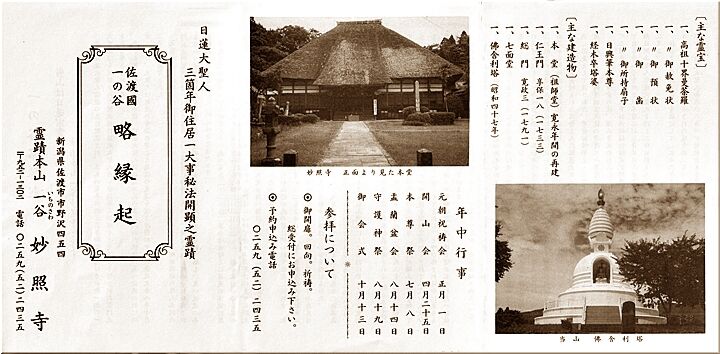 〔主な霊宝〕
一、高祖十界曼荼羅
一、〃御赦免状
一、〃御預状
一、〃御出
一、〃御所持扇子
一、日興筆本尊
一、経木卒塔婆
〔主な建造物〕
一、本堂（祖師堂）寛永年間の再建
一、仁王門 享保一八（一七三三）
一、総門 寛政三（一七九一）
一、七面堂
一、佛舎利塔（昭和四十七年）
当山 佛舎利塔
妙照寺 正面より見た本堂
年中行事
元朝祝祷会 正月一日
開山会 四月二十五日
本尊祭 七月八日
盂蘭盆会 八月十四日
守護神祭 八月十九日
御会式 十月十三日
※
参拝について
◎御開扉。回向。祈祷。
総受付にお申込み下さい。
◎予約申込み電話
〇二五九（五二）二四三五
日蓮大聖人
三箇年御住居一大事秘法開顕之霊蹟
佐渡國
一の谷
略縁起
新潟県佐渡市市野沢四五四
霊蹟本山 一谷 妙照寺
いちのさわ
電話 〇二五九（五二）二四三五